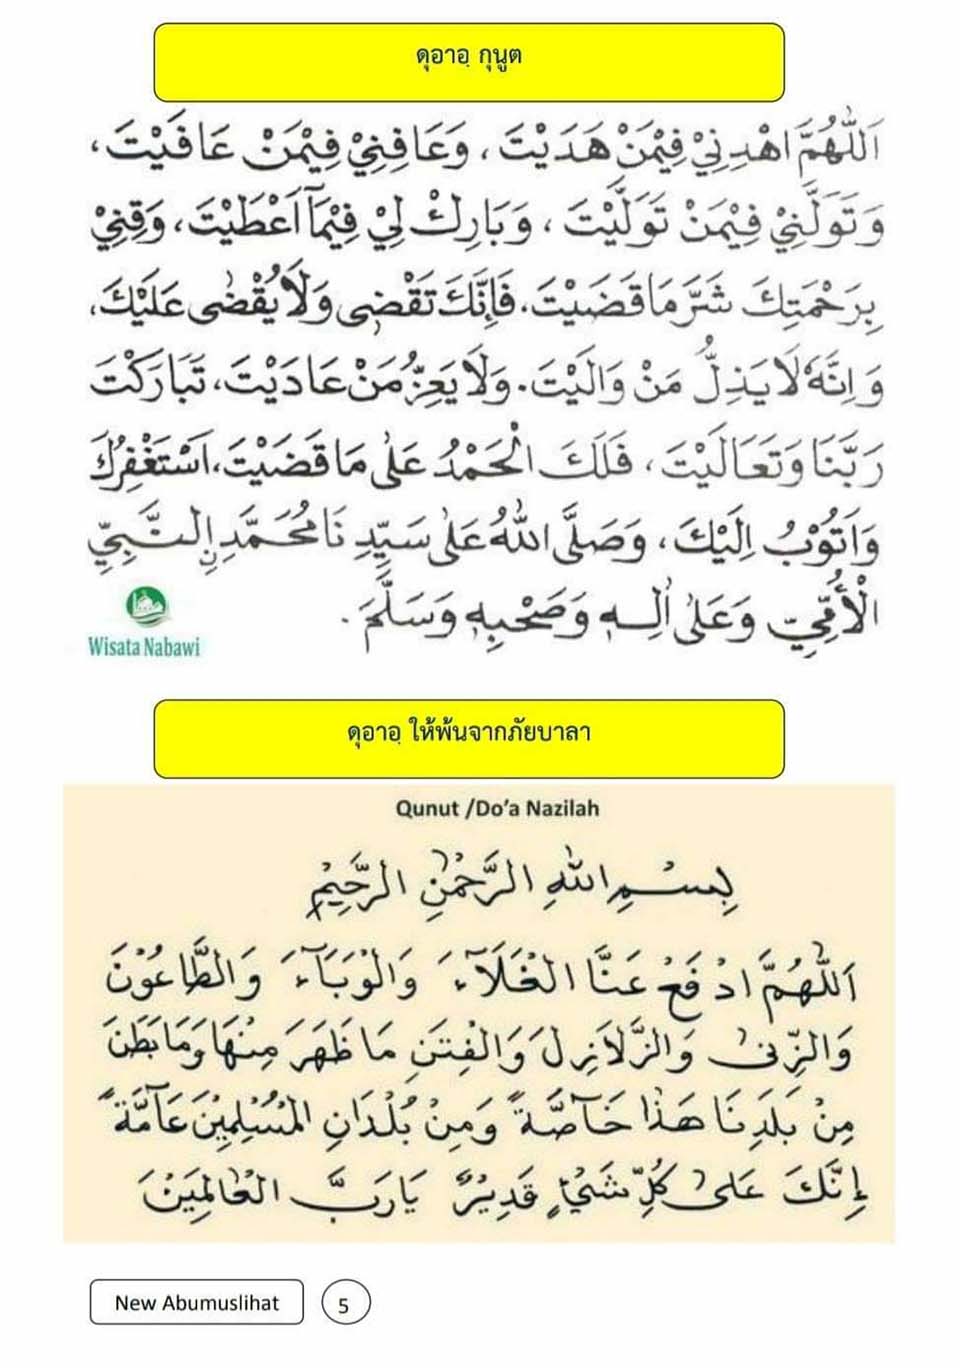 ดุอาอฺ กุนูต
اَللّٰهُمَّ اهْدِنِيْ فِيْمَنْ هَدَيْتَ، وَعَافِنِيْ فِيْمَنْ عَافَيْتَ،
وَتَوَلَّنِيْ فِيْمَنْ تَوَلَّيْتَ، وَبَارِكْ لِيْ فِيْمَآ اَعْطَيْتَ، وَقِنِيْ
بِرَحْمَتِكَ شَرَّ مَا قَضَيْتَ. فَاِنَّكَ تَقْضِى وَلَا يُقْضٰى عَلَيْكَ،
وَاِنَّهٗ لَا يَذِلُّ مَنْ وَالَيْتَ. وَلَا يَعِزُّ مَنْ عَادَيْتَ، تَبَارَكْتَ
رَبَّنَا وَتَعَالَيْتَ، فَلَكَ الْحَمْدُ عَلٰى مَا قَضَيْتَ، اَسْتَغْفِرُكَ
وَاَتُوْبُ اِلَيْكَ، وَصَلَّى اللّٰهُ عَلٰى سَيِّدِنَا مُحَمَّدِنِ النَّبِيِّ
الْأُمِّيِّ وَعَلٰى اٰلِهٖ وَصَحْبِهٖ وَسَلَّمَ.
Wisata Nabawi
ดุอาอฺ ให้พ้นจากภัยบาลา
Qunut /Do'a Nazilah
بِسْمِ اللّٰهِ الرَّحْمٰنِ الرَّحِيْمِ
اَللّٰهُمَّ ادْفَعْ عَنَّا الْغَلَآءَ وَالْوَبَآءَ وَالطَّاعُوْنَ
وَالزِّنٰى وَالزَّلَازِلَ وَالْفِتَنَ مَا ظَهَرَ مِنْهَا وَمَا بَطَنَ
مِنْ بَلَدِنَا هٰذَا خَآصَّةً وَمِنْ بُلْدَانِ الْمُسْلِمِيْنَ عَآمَّةً
إِنَّكَ عَلٰى كُلِّ شَيْءٍ قَدِيْرٌ يَا رَبَّ الْعَالَمِيْنَ
New Abumuslihat 5